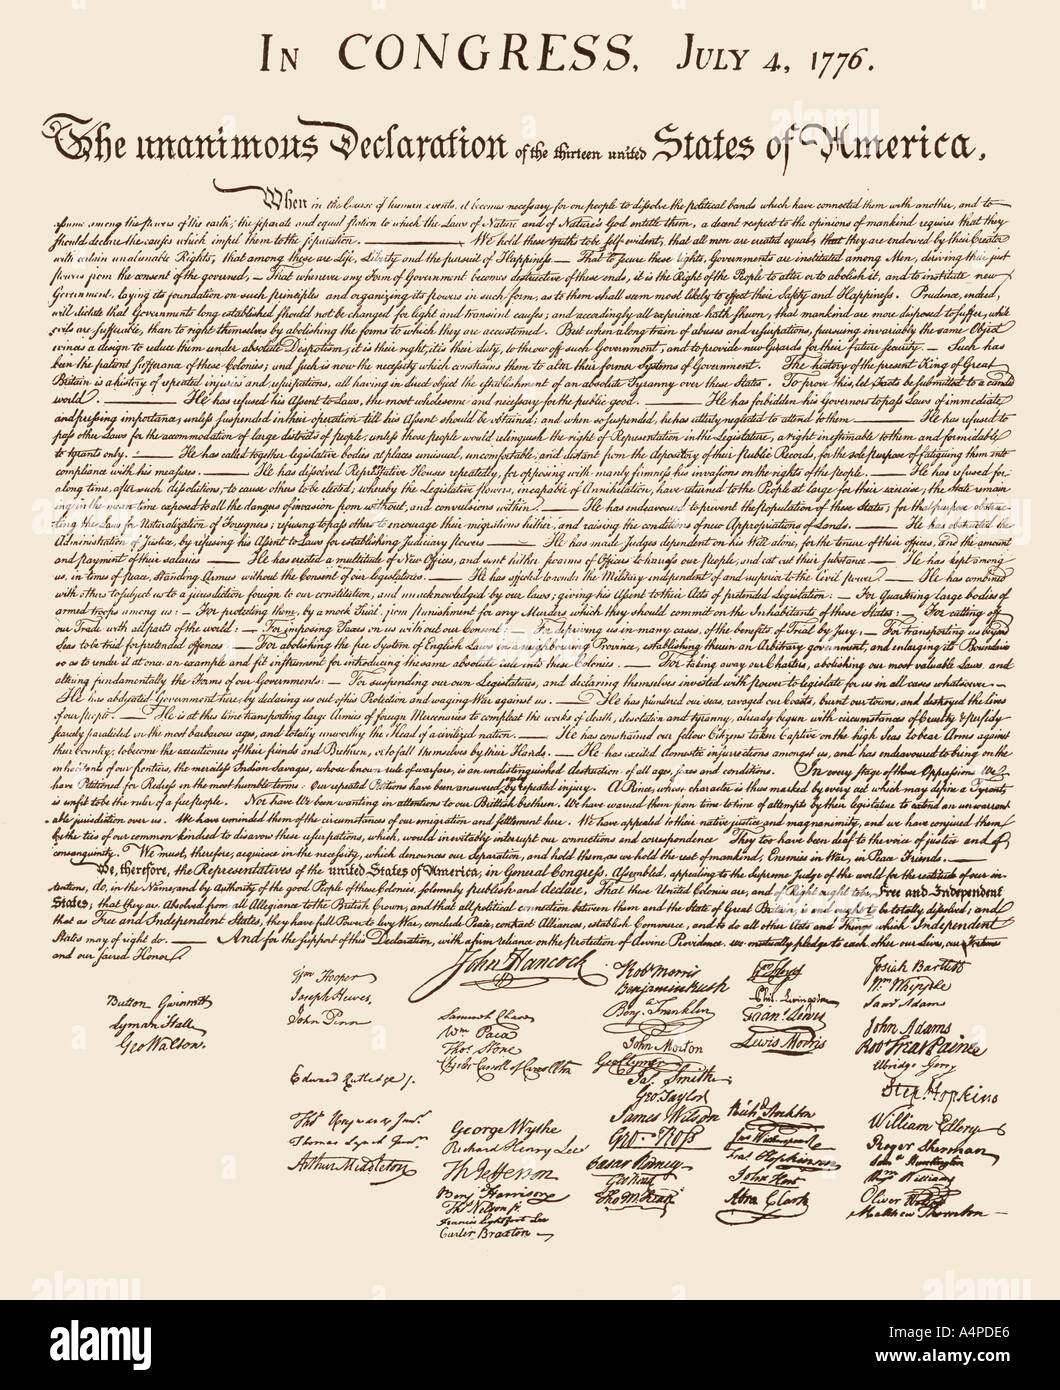 IN CONGRESS, JULY 4, 1776.
The unanimous Declaration of the thirteen united States of America,
When in the Course of human events, it becomes necessary for one people to dissolve the political bands which have connected them with another, and to
assume among the powers of the earth, the separate and equal station to which the Laws of Nature and of Nature's God entitle them, a decent respect to the opinions of mankind requires that they
should declare the causes which impel them to the separation. — We hold these truths to be self-evident, that all men are created equal, that they are endowed by their Creator
with certain unalienable Rights, that among these are Life, Liberty and the pursuit of Happiness. — That to secure these rights, Governments are instituted among Men, deriving their just
powers from the consent of the governed, — That whenever any Form of Government becomes destructive of these ends, it is the Right of the People to alter or to abolish it, and to institute new
Government, laying its foundation on such principles and organizing its powers in such form, as to them shall seem most likely to effect their Safety and Happiness. Prudence, indeed,
will dictate that Governments long established should not be changed for light and transient causes; and accordingly all experience hath shewn, that mankind are more disposed to suffer, while
evils are sufferable, than to right themselves by abolishing the forms to which they are accustomed. But when a long train of abuses and usurpations, pursuing invariably the same Object
evinces a design to reduce them under absolute Despotism, it is their right, it is their duty, to throw off such Government, and to provide new Guards for their future security. — Such has
been the patient sufferance of these Colonies; and such is now the necessity which constrains them to alter their former Systems of Government. The history of the present King of Great
Britain is a history of repeated injuries and usurpations, all having in direct object the establishment of an absolute Tyranny over these States. To prove this, let Facts be submitted to a candid
world. — He has refused his Assent to Laws, the most wholesome and necessary for the public good. — He has forbidden his Governors to pass Laws of immediate
and pressing importance, unless suspended in their operation till his Assent should be obtained; and when so suspended, he has utterly neglected to attend to them. — He has refused to
pass other Laws for the accommodation of large districts of people, unless those people would relinquish the right of Representation in the Legislature, a right inestimable to them and formidable
to tyrants only. — He has called together legislative bodies at places unusual, uncomfortable, and distant from the depository of their public Records, for the sole purpose of fatiguing them into
compliance with his measures. — He has dissolved Representative Houses repeatedly, for opposing with manly firmness his invasions on the rights of the people. — He has refused for
a long time, after such dissolutions, to cause others to be elected; whereby the Legislative powers, incapable of Annihilation, have returned to the People at large for their exercise; the State remain
ing in the mean time exposed to all the dangers of invasion from without, and convulsions within. — He has endeavoured to prevent the population of these States; for that purpose obstruc-
ting the Laws for Naturalization of Foreigners; refusing to pass others to encourage their migrations hither, and raising the conditions of new Appropriations of Lands. — He has obstructed the
Administration of Justice, by refusing his Assent to Laws for establishing Judiciary powers. — He has made Judges dependent on his Will alone, for the tenure of their offices, and the amount
and payment of their salaries. — He has erected a multitude of New Offices, and sent hither swarms of Officers to harrass our people, and eat out their substance. — He has kept among
us, in times of peace, Standing Armies without the Consent of our legislatures. — He has affected to render the Military independent of and superior to the Civil power. — He has combined
with others to subject us to a jurisdiction foreign to our constitution, and unacknowledged by our laws; giving his Assent to their Acts of pretended Legislation: — For Quartering large bodies of
armed troops among us: — For protecting them, by a mock Trial, from punishment for any Murders which they should commit on the Inhabitants of these States: — For cutting off
our Trade with all parts of the world: — For imposing Taxes on us without our Consent: — For depriving us in many cases, of the benefits of Trial by Jury: — For transporting us beyond
Seas to be tried for pretended offences — For abolishing the free System of English Laws in a neighbouring Province, establishing therein an Arbitrary government, and enlarging its Boundaries
so as to render it at once an example and fit instrument for introducing the same absolute rule into these Colonies: — For taking away our Charters, abolishing our most valuable Laws, and
altering fundamentally the Forms of our Governments: — For suspending our own Legislatures, and declaring themselves invested with power to legislate for us in all cases whatsoever. —
He has abdicated Government here, by declaring us out of his Protection and waging War against us. — He has plundered our seas, ravaged our Coasts, burnt our towns, and destroyed the lives
of our people. — He is at this time transporting large Armies of foreign Mercenaries to compleat the works of death, desolation and tyranny, already begun with circumstances of Cruelty & perfidy
scarcely paralleled in the most barbarous ages, and totally unworthy the Head of a civilized nation. — He has constrained our fellow Citizens taken Captive on the high Seas to bear Arms against
their Country, to become the executioners of their friends and Brethren, or to fall themselves by their Hands. — He has excited domestic insurrections amongst us, and has endeavoured to bring on the
inhabitants of our frontiers, the merciless Indian Savages, whose known rule of warfare, is an undistinguished destruction of all ages, sexes and conditions. In every stage of these Oppressions We
have Petitioned for Redress in the most humble terms: Our repeated Petitions have been answered only by repeated injury. A Prince, whose character is thus marked by every act which may define a Tyrant,
is unfit to be the ruler of a free people. Nor have We been wanting in attentions to our Brittish brethren. We have warned them from time to time of attempts by their legislature to extend an unwarrant
able jurisdiction over us. We have reminded them of the circumstances of our emigration and settlement here. We have appealed to their native justice and magnanimity, and we have conjured them
by the ties of our common kindred to disavow these usurpations, which, would inevitably interrupt our connections and correspondence. They too have been deaf to the voice of justice and of
consanguinity. We must, therefore, acquiesce in the necessity, which denounces our Separation, and hold them, as we hold the rest of mankind, Enemies in War, in Peace Friends. —
We, therefore, the Representatives of the united States of America, in General Congress, Assembled, appealing to the Supreme Judge of the world for the rectitude of our in-
tentions, do, in the Name, and by Authority of the good People of these Colonies, solemnly publish and declare, That these United Colonies are, and of Right ought to be Free and Independent
States; that they are Absolved from all Allegiance to the British Crown, and that all political connection between them and the State of Great Britain, is and ought to be totally dissolved; and
that as Free and Independent States, they have full Power to levy War, conclude Peace, contract Alliances, establish Commerce, and to do all other Acts and Things which Independent
States may of right do. — And for the support of this Declaration, with a firm reliance on the Protection of divine Providence, we mutually pledge to each other our Lives, our Fortunes
and our sacred Honor.
Button Gwinnett
Lyman Hall
Geo Walton.
Wm Hooper
Joseph Hewes,
John Penn
Edward Rutledge /.
Thos Heyward Junr.
Thomas Lynch Junr.
Arthur Middleton
John Hancock
Samuel Chase
Wm. Paca
Thos. Stone
Charles Carroll of Carrollton
George Wythe
Richard Henry Lee
Th Jefferson
Benj. Harrison
Thos Nelson jr.
Francis Lightfoot Lee
Carter Braxton
Robt Morris
Benjamin Rush
Benj. Franklin
John Morton
Geo Clymer
Jas. Smith
Geo. Taylor
James Wilson
Geo. Ross
Caesar Rodney
Geo Read
Tho M:Kean
Phil. Livingston
Frans. Lewis
Lewis Morris
Richd. Stockton
Jno Witherspoon
Fras. Hopkinson
John Hart
Abra Clark
Josiah Bartlett
Wm. Whipple
Saml Adams
John Adams
Robt Treat Paine
Elbridge Gerry
Step. Hopkins
William Ellery
Roger Sherman
Saml Huntington
Wm. Williams
Oliver Wolcott
Matthew Thornton
alamy
Image ID: A4PDE6
www.alamy.com